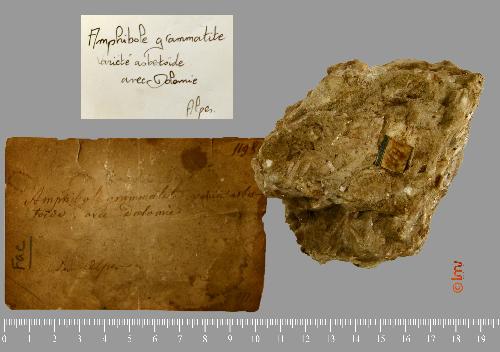 Amphibole grammatite
variété asbetoïde
avec Dolomie
Alpes.
1198
Amphibole grammatite
avec dolomie
des Alpes
Fac
©lmv
0 1 2 3 4 5 6 7 8 9 10 11 12 13 14 15 16 17 18 19